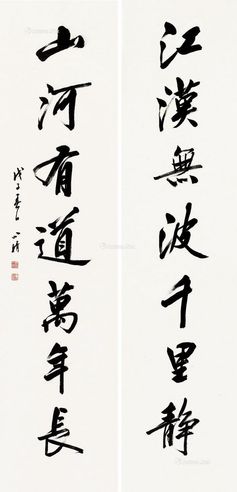 江漠無波千里静
山河有道萬年長
戊子夏